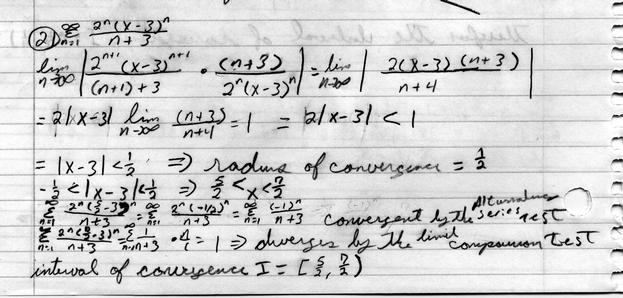 21) ∞Σn=1 2ⁿ(x-3)ⁿ / n+3
lim n→∞ | 2ⁿ⁺¹(x-3)ⁿ⁺¹ / (n+1)+3 · (n+3) / 2ⁿ(x-3)ⁿ | = lim n→∞ | 2(x-3)(n+3) / n+4 |
= 2|x-3| lim n→∞ (n+3) / n+4 = 1 = 2|x-3| < 1
= |x-3| < 1/2 ⇒ radius of convergence = 1/2
-1/2 < |x-3| < 1/2 ⇒ 5/2 < x < 7/2
∞Σn=1 2ⁿ(5/2-3)ⁿ / n+3 = ∞Σn=1 2ⁿ(-1/2)ⁿ / n+3 = ∞Σn=1 (-1)ⁿ / n+3 convergent by the Alternating series test
∞Σn=1 2ⁿ(7/2-3)ⁿ / n+3 = ∞Σn=1 1 / n+3 · = 1 ⇒ diverges by the limit comparison test
interval of convergence I = [5/2, 7/2)